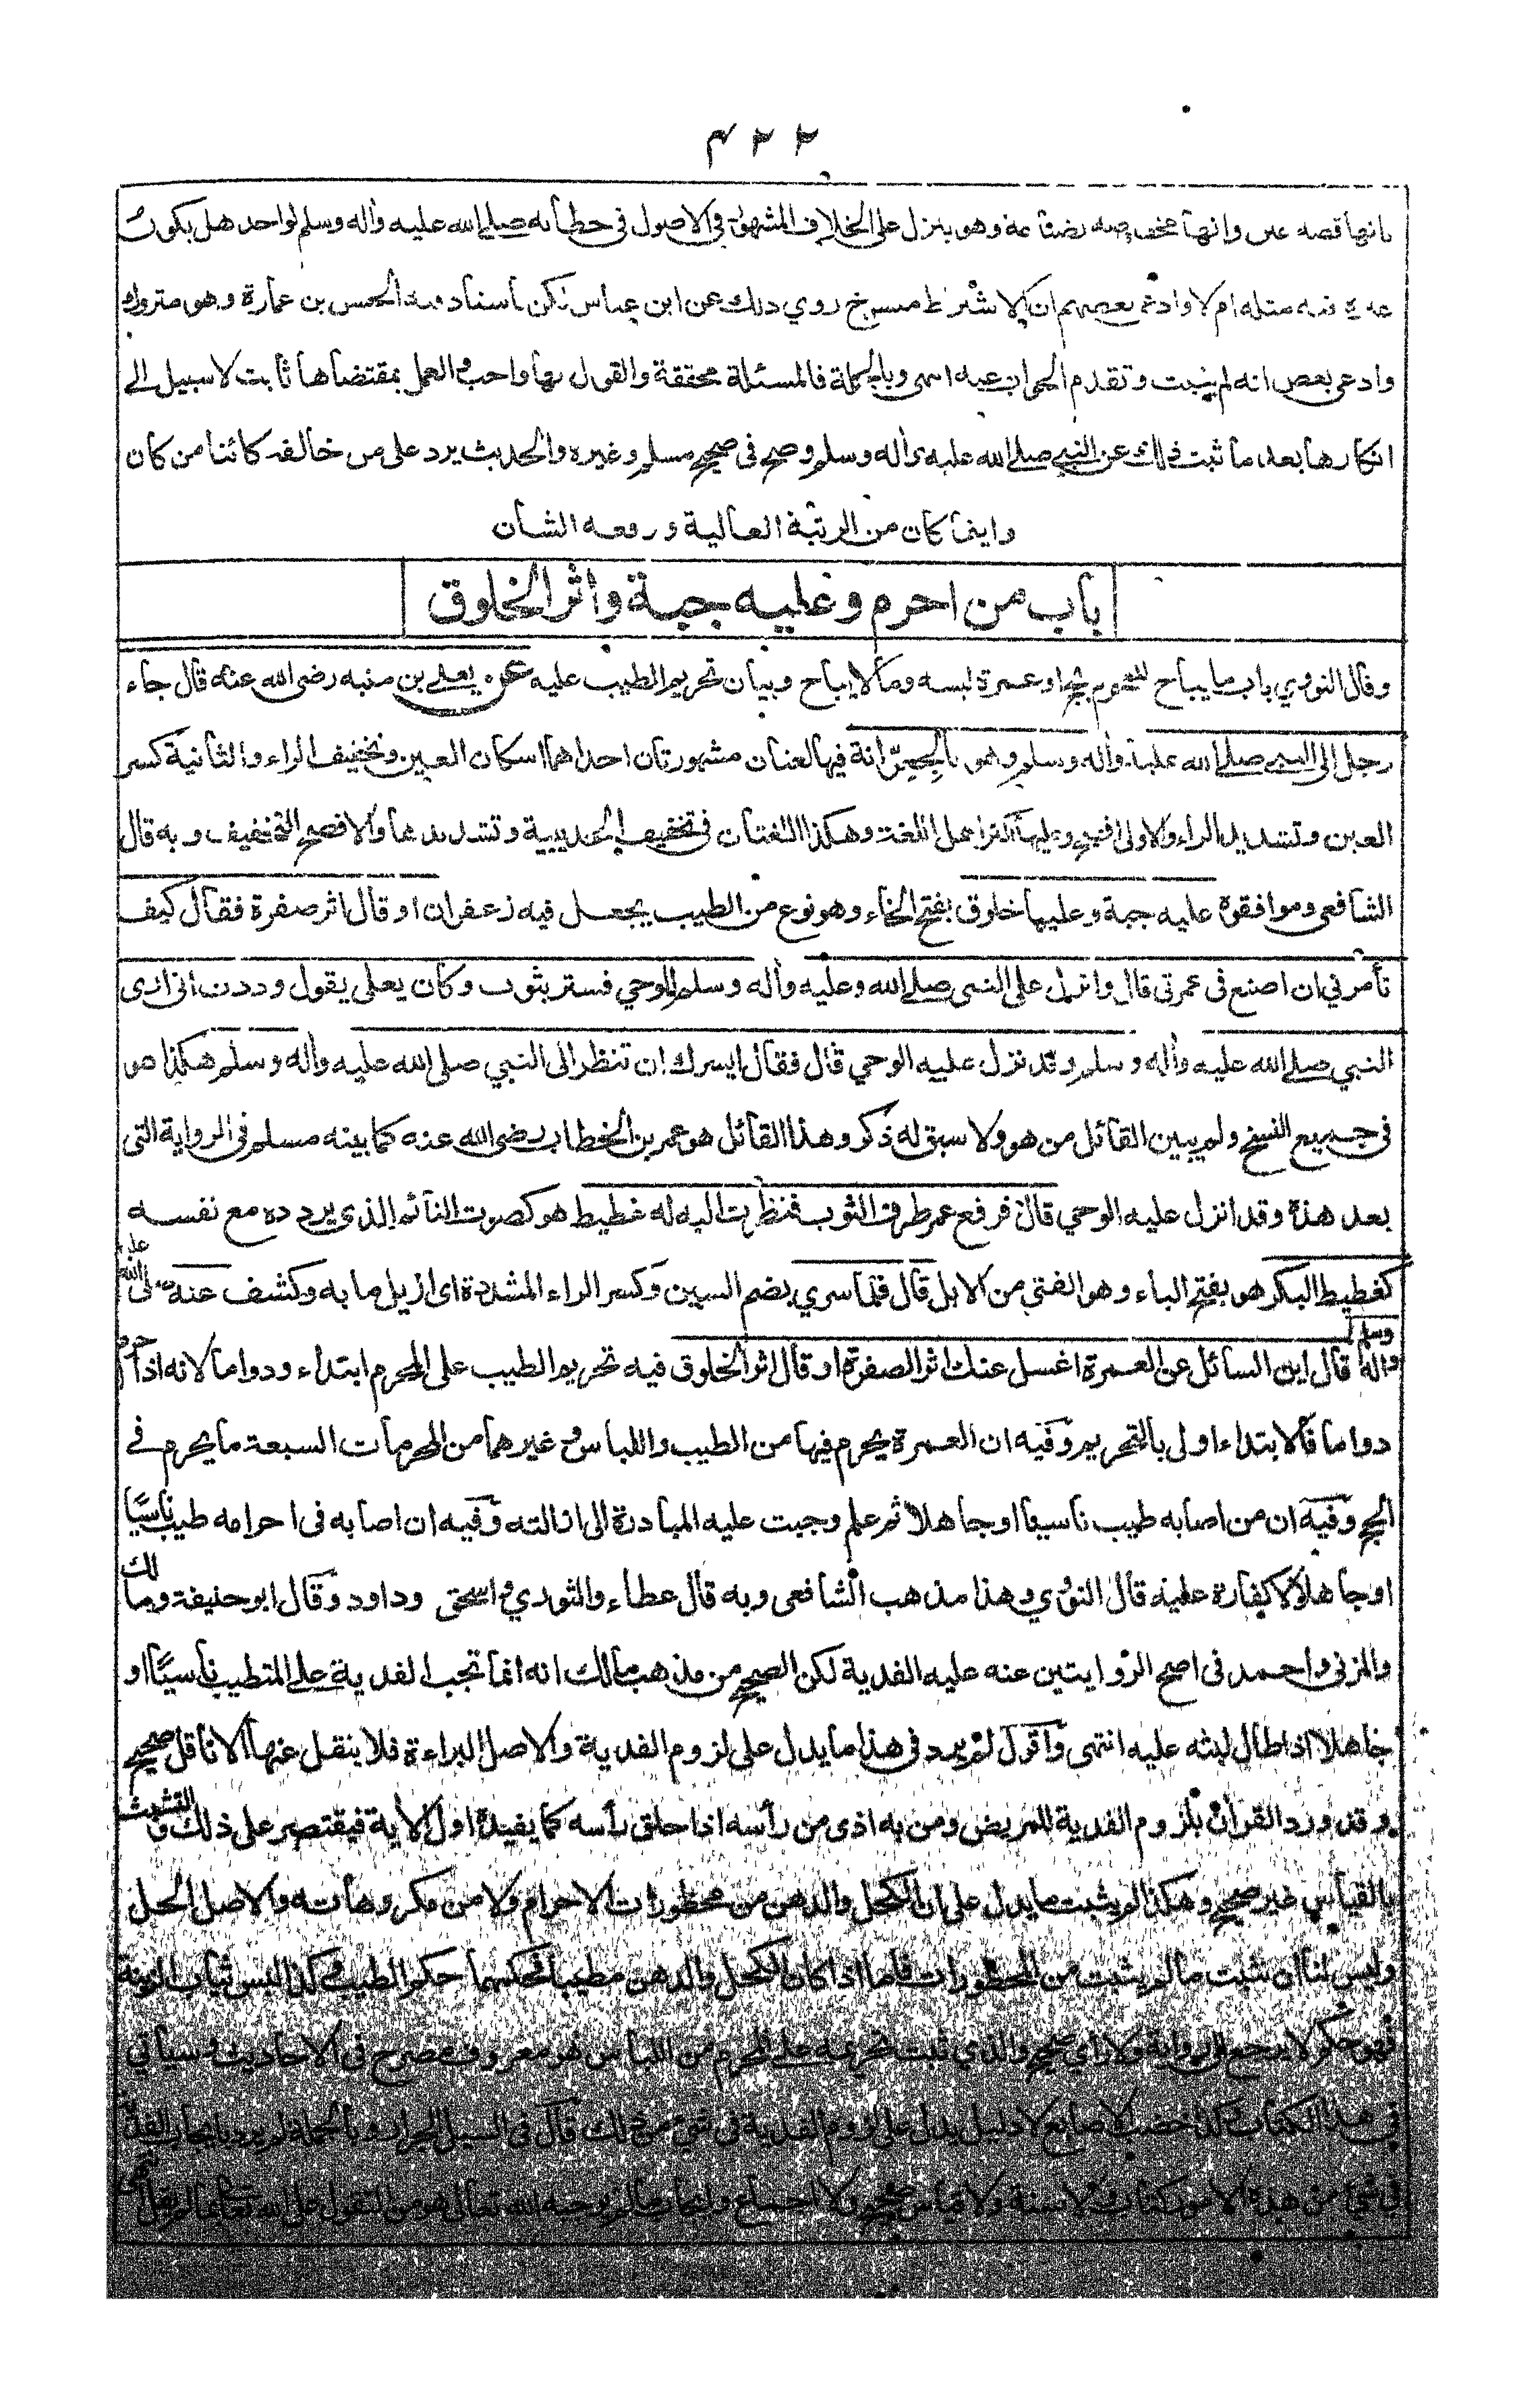 ٤٢٢
بانها قصة عين وانها مخصوصة بضباعة وهو يتنزل على الخلاف المشهور في الاصول في خطابه صلى الله عليه واله وسلم لواحد هل يكون
غيره فيه مثله ام لا وادعى بعضهم ان الاشتراط منسوخ روي ذلك عن ابن عباس لكن باسناد فيه الحسن بن عمارة وهو متروك
وادعى بعض انه لم يثبت وتقدم الجواب عنه انتهى وبالجملة فالمسئلة محققة والقول بها واجب والعمل بمقتضاها ثابت لا سبيل الى
انكارها بعد ما ثبت ذلك عن النبي صلى الله عليه واله وسلم وصح في صحيح مسلم وغيره والحديث يرد على من خالفه كائنا من كان
واينما كان من الرتبة العالية ورفعة الشان
باب من احرم وعليه جبة واثر الخلوق
وقال النووي باب ما يباح للمحرم بحج او عمرة لبسه وما لا يباح وبيان تحريم الطيب عليه عن يعلى بن منبه رضى الله عنه قال جاء
رجل الى النبي صلى الله عليه واله وسلم وهو بالجعرّانة فيها لغتان مشهورتان احداهما اسكان العين وتخفيف الراء والثانية كسر
العين وتشديد الراء والاولى افصح وعليها اكثر اهل اللغة وهكذا اللغتان في تخفيف الحديبية وتشديدها والافصح التخفيف وبه قال
الشافعي وموافقوه عليه جبة وعليها خلوق بفتح الخاء وهو نوع من الطيب يجعل فيه زعفران او قال اثر صفرة فقال كيف
تأمرني ان اصنع في عمرتي قال وانزل على النبي صلى الله وعليه واله وسلم الوحي فستر بثوب وكان يعلى يقول وددت اني ارى
النبي صلى الله عليه واله وسلم وقد نزل عليه الوحي قال فقال ايسرك ان تنظر الى النبي صلى الله عليه واله وسلم هكذا هو
في جميع النسخ ولم يبين القائل من هو ولا سبق له ذكر وهذا القائل هو عمر بن الخطاب رضى الله عنه كما بينه مسلم في الرواية التى
بعد هذة وقد انزل عليه الوحي قال فرفع عمر طرف الثوب فنظرت اليه له غطيط هو كصوت النائم الذي يردده مع نفسه
كغطيط البكر هو بفتح الباء وهو الفتي من الابل قال فلما سري بضم السين وكسر الراء المشددة اى ازيل ما به وكشف عنه صلى الله عليه
واله وسلم قال اين السائل عن العمرة اغسل عنك اثر الصفرة او قال اثر الخلوق فيه تحريم الطيب على المحرم ابتداء ودواما لانه اذا حرم
دواما فالابتداء اولى بالتحريم وفيه ان العمرة يحرم فيها من الطيب واللباس وغيرهما من المحرمات السبعة ما يحرم في
الحج وفيه ان من اصابه طيب ناسيا او جاهلا ثم علم وجبت عليه المبادرة الى ازالته وفيه ان اصابه في احرامه طيب ناسيًا
او جاهلا لا كفارة عليه قال النووي وهذا مذهب الشافعي وبه قال عطاء والثوري واسحق وداود وقال ابو حنيفة ومالك
والمزنى واحمد في اصح الروايتين عنه عليه الفدية لكن الصحيح من مذهب مالك انه انما تجب الفدية على المتطيب ناسيًا او
جاهلا اذا طال لبثه عليه انتهى واقول لم يرد في هذا ما يدل على لزوم الفدية والاصل البراءة فلا ينقل عنها الا ناقل صحيح
وقد ورد القران بلزوم الفدية للمريض ومن به اذى من رأسه اذا حلق رأسه كما يفيدة اول الآية فيقتصر على ذلك والتشبث
بالقياس غير صحيح وهكذا لم يثبت ما يدل على ان الكحل والدهن من محظورات الاحرام ولا من مكروهاته والاصل الحل
وليس لنا ان نثبت ما لم يثبت من المحظورات فاما اذا كان الكحل والدهن مطيبا فحكمهما حكم الطيب وكذا لبس ثياب الزينة
فهو حكم لا يرجع الى رواية ولا رأي صحيح والذي ثبت تحريمه على المحرم من اللباس هو معروف مصرح في الاحاديث وسيأتي
في هذا الكتاب وكذا خضب الاصابع لا دليل يدل على لزوم الفدية في شئ من ذلك قال في السيل الجرار وبالجملة لم يرد بايجاب الفدية
في شئ من هذه الامور كتاب ولا سنة ولا قياس صحيح ولا اجماع وايجاب ما لم يوجبه الله تعالى هو من التقول على الله تعالى بما لم يقل انتهى